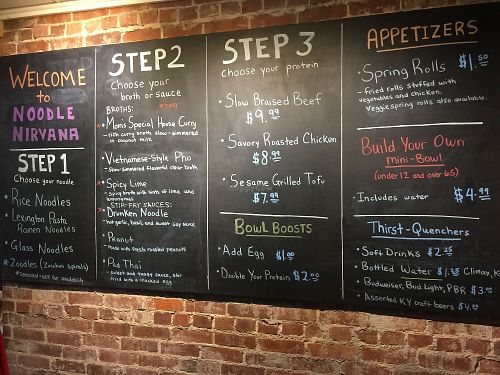 WELCOME
to
NOODLE
NIRVANA
STEP 1
Choose your noodle
• Rice Noodles
• Lexington Pasta
Ramen Noodles
• Glass Noodles
* Zoodles (zucchini spirals)
STEP 2
Choose your
broth or sauce
BROTHS:
• Mom's Special House Curry
- rich curry broth slow-simmered
in coconut milk
• Vietnamese-Style Pho
- Slow-simmered flavorful clear broth
• Spicy Lime
- spicy broth with hints of lime and
lemongrass
STIR-FRY SAUCES:
• Drunken Noodle
- hot garlic, basil, and sweet soy sauce
• Peanut
- Made with fresh roasted peanuts
• Pad Thai
- sweet and tangy sauce, stir
fried with a cracked egg
STEP 3
choose your protein
• Slow Braised Beef
$9.99
• Savory Roasted Chicken
$8.99
• Sesame Grilled Tofu
$7.99
BOWL BOOSTS
• Add Egg $1.00
• Double Your Protein $2.00
APPETIZERS
• Spring Rolls $1.50
- fried rolls stuffed with
vegetables and chicken.
Veggie spring rolls also available.
Build Your Own
mini-Bowl
(under 12 and over 65)
• Includes water $4.99
Thirst-Quenchers
• Soft Drinks $2.25
• Bottled Water Climax, K
• Budweiser, Bud Light, PBR $3.
• Assorted KY craft beers $4.